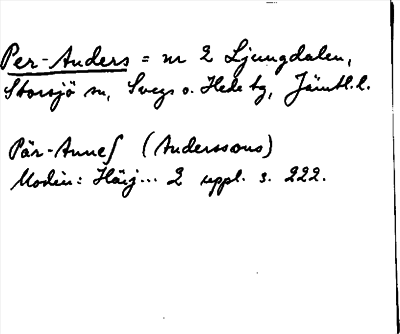 Per-Anders = nr 2 Ljungdalen,
Storsjö sn, Svegs o. Hede tg, Jämtl. l.
Pär-Annes (Anderssons)
Modin: Härj... 2 uppl. s. 222.